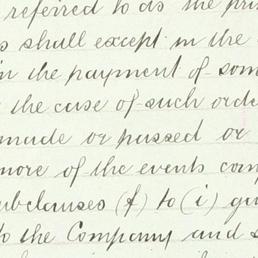 referred to as the pri
s shall except in the
in the payment of som
the case of such orde
made or passed or
more of the events com
ubclauses (f) to (i) gi
to the Company and s